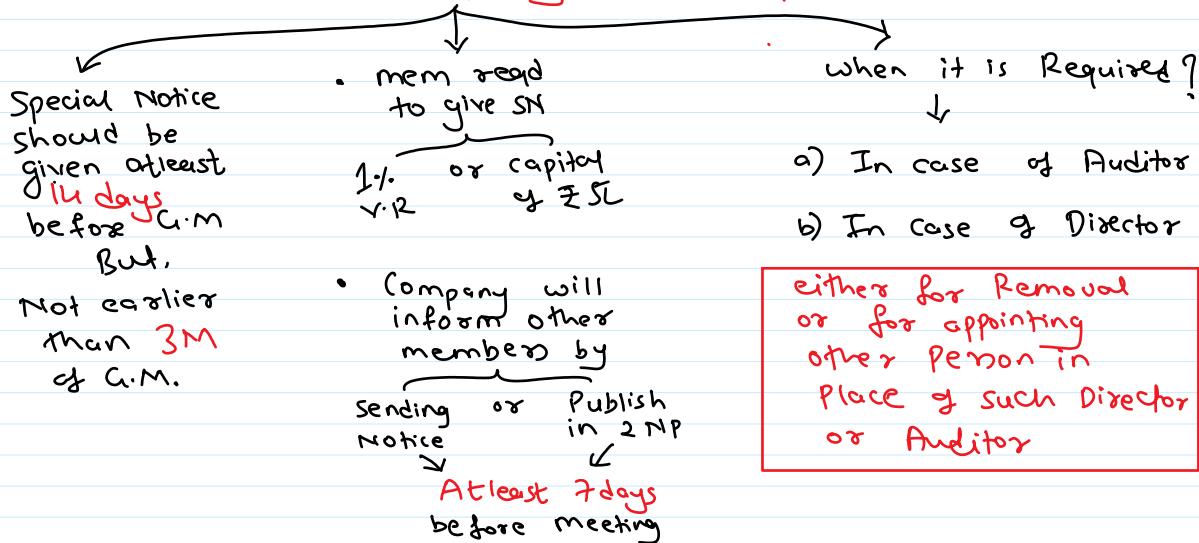 Special Notice
should be
given atleast
14 days
before G.M
But,
Not earlier
than 3M
of G.M.
• mem reqd
to give SN
1% or capital
V.R of ₹ 5L
• Company will
inform other
members by
Sending or Publish
Notice in 2 NP
Atleast 7 days
before meeting
When it is Required?
a) In case of Auditor
b) In case of Director
either for Removal
or for appointing
other Person in
Place of such Director
or Auditor